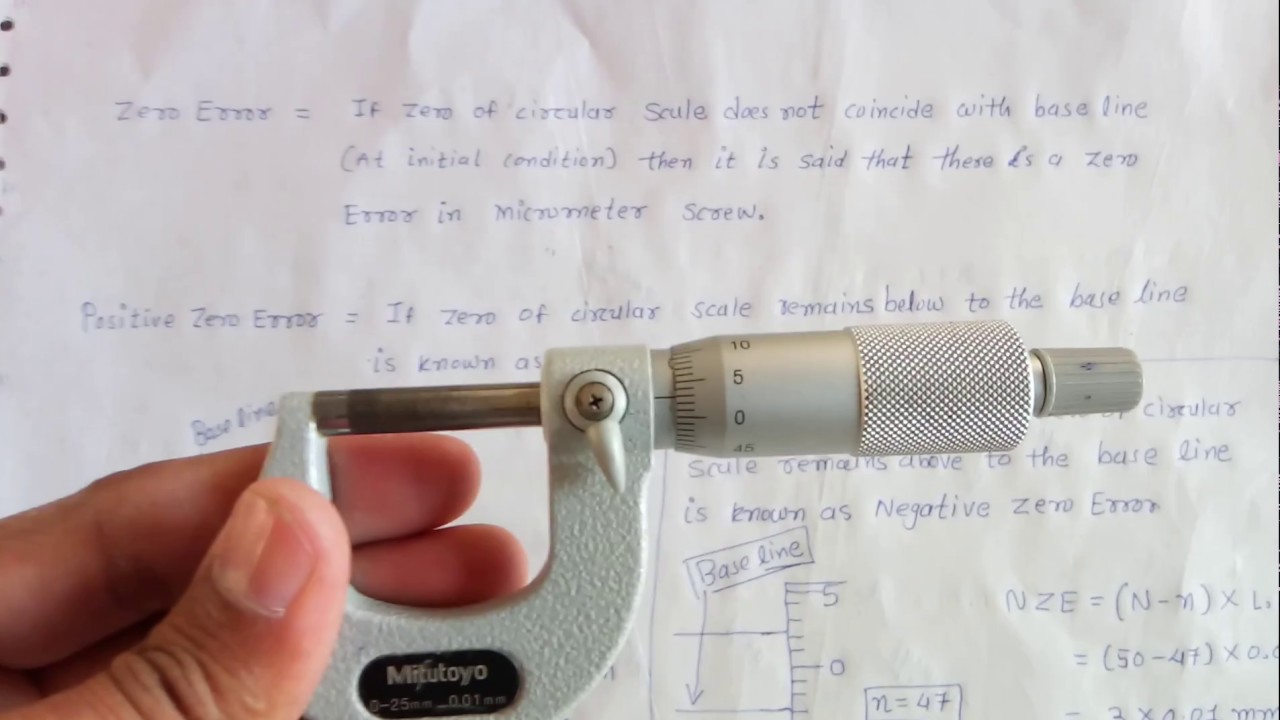 Zero Error = If zero of circular Scule does not coincide with base line
(At initial condition) then it is said that there is a zero
Error in micrometer screw.
Positive Zero Error = If zero of circular scale remains below to the base line
is known as
10
5
0
45
Base line
circular
Scule remains above to the base line
is known as Negative Zero Error
Base line
5
0
NZE = (N-n) X L.
= (50-47) X 0.0
n=47
= 3 X 0.01 mm
Mitutoyo
0-25mm 0.01mm